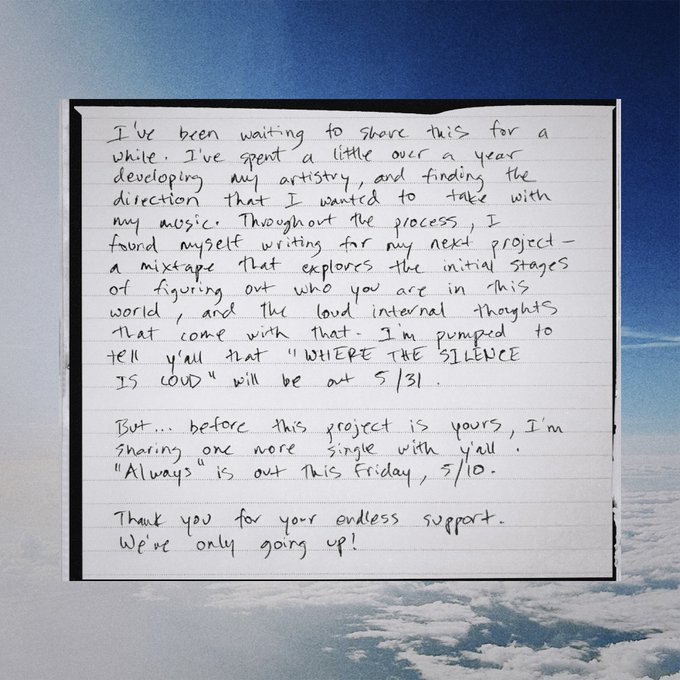 I've been waiting to share this for a
while. I've spent a little over a year
developing my artistry, and finding the
direction that I wanted to take with
my music. Throughout the process, I
found myself writing for my next project –
a mixtape that explores the initial stages
of figuring out who you are in this
world, and the loud internal thoughts
that come with that. I'm pumped to
tell y'all that "WHERE THE SILENCE
IS LOUD" will be out 5/31.
But... before this project is yours, I'm
sharing one more single with y'all.
"Always" is out this Friday, 5/10.
Thank you for your endless support.
We're only going up!